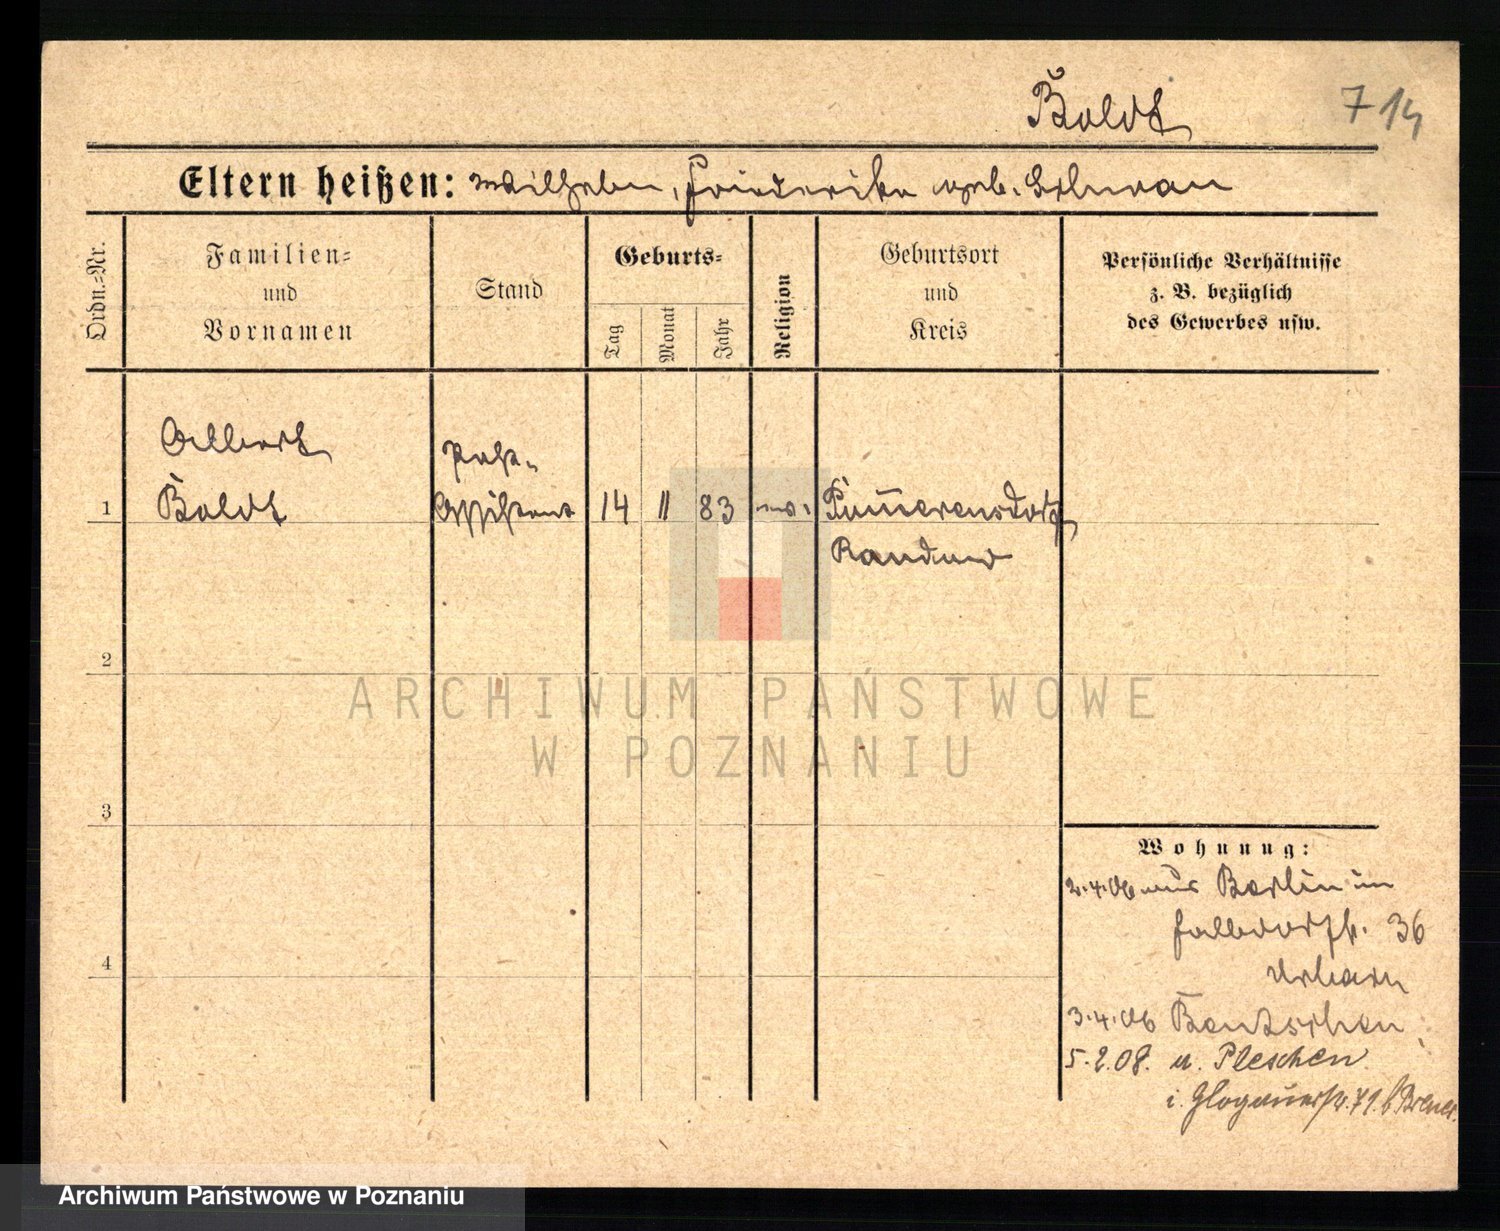 Boldt
7 14
Eltern heißen: Wilhelm, Friederike geb. Schwan
Ordn.-Nr.
Familien-
und
Vornamen
Stand
Geburts-
Tag
Monat
Jahr
Religion
Geburtsort
und
Kreis
Persönliche Verhältnisse
z. B. bezüglich
des Gewerbes usw.
Albert
Boldt
Post-
Assistent
1
14
11
83
ev.
Pommerensdorf
Randow
2
3
4
Wohnung:
2.4.06 aus Berlin in
36
3.4.06 Bentschen
5.2.08. a. Pleschen
i. Glogauerstr. 71. b.
ARCHIWUM PAŃSTWOWE
W POZNANIU
Archiwum Państwowe w Poznaniu